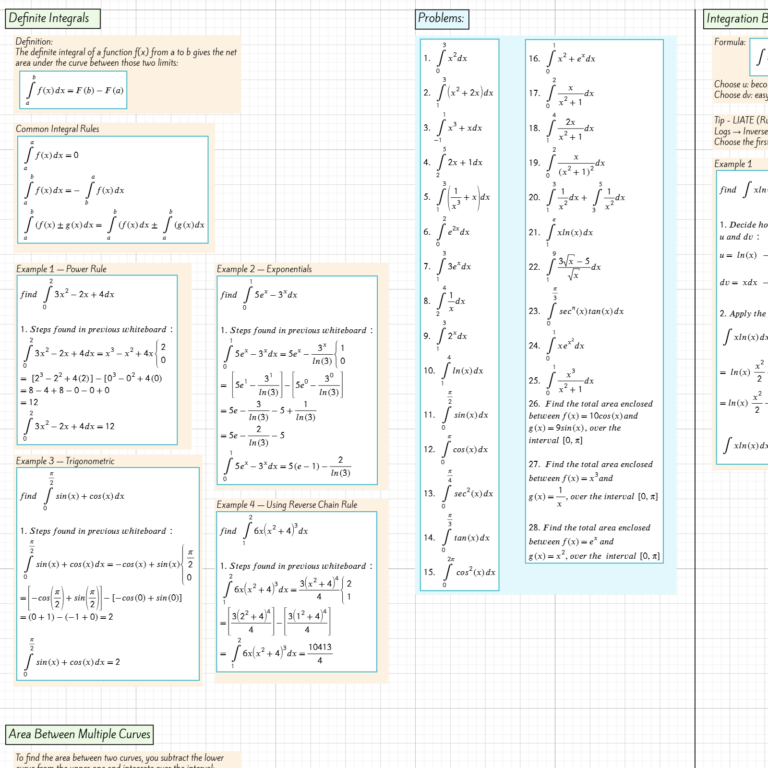 Definite Integrals
Definition:
The definite integral of a function f(x) from a to b gives the net
area under the curve between those two limits:
∫_a^b f(x)dx = F(b) − F(a)
Common Integral Rules
∫_a^a f(x)dx = 0
∫_a^b f(x)dx = − ∫_b^a f(x)dx
∫_a^b (f(x) ± g(x)dx = ∫_a^b (f(x)dx ± ∫_a^b (g(x)dx
Example 1 — Power Rule
find ∫_0^2 3x² − 2x + 4dx
1. Steps found in previous whiteboard :
∫_0^2 3x² − 2x + 4dx = x³ − x² + 4x{ 2 0
= [2³ − 2² + 4(2)] − [0³ − 0² + 4(0)
= 8 − 4 + 8 − 0 − 0 + 0
= 12
∫_0^2 3x² − 2x + 4dx = 12
Example 2 — Exponentials
find ∫_0^1 5e^x − 3^x dx
1. Steps found in previous whiteboard :
∫_0^1 5e^x − 3^x dx = 5e^x − 3^x/ln(3) { 1 0
= [5e^1 − 3^1/ln(3)] − [5e^0 − 3^0/ln(3)]
= 5e − 3/ln(3) − 5 + 1/ln(3)
= 5e − 2/ln(3) − 5
∫_0^1 5e^x − 3^x dx = 5(e − 1) − 2/ln(3)
Example 3 — Trigonometric
find ∫_0^(π/2) sin(x) + cos(x)dx
1. Steps found in previous whiteboard :
∫_0^(π/2) sin(x) + cos(x)dx = −cos(x) + sin(x){ π/2 0
= [−cos(π/2) + sin(π/2)] − [−cos(0) + sin(0)]
= (0 + 1) − (−1 + 0) = 2
∫_0^(π/2) sin(x) + cos(x)dx = 2
Example 4 — Using Reverse Chain Rule
find ∫_1^2 6x(x² + 4)³dx
1. Steps found in previous whiteboard :
∫_1^2 6x(x² + 4)³dx = 3(x² + 4)⁴/4 { 2 1
= [3(2² + 4)⁴/4] − [3(1² + 4)⁴/4]
= ∫_1^2 6x(x² + 4)³dx = 10413/4
Area Between Multiple Curves
To find the area between two curves, you subtract the lower
Problems:
1. ∫_0^3 x²dx
2. ∫_1^3 (x² + 2x)dx
3. ∫_−1^1 x³ + xdx
4. ∫_2^5 2x + 1dx
5. ∫_1^3 (1/x³ + x)dx
6. ∫_0^2 e^(2x)dx
7. ∫_1^3 3e^x dx
8. ∫_1^4 1/x dx
9. ∫_0^1 2^x dx
10. ∫_1^4 ln(x)dx
11. ∫_0^(π/2) sin(x)dx
12. ∫_0^π cos(x)dx
13. ∫_0^(π/4) sec²(x)dx
14. ∫_0^(π/3) tan(x)dx
15. ∫_0^(2π) cos²(x)dx
16. ∫_0^1 x² + e^x dx
17. ∫_0^2 x/(x² + 1) dx
18. ∫_1^4 2x/(x² + 1) dx
19. ∫_0^2 x/(x² + 1)² dx
20. ∫_1^3 1/x² dx + ∫_3^5 1/x² dx
21. ∫_1^e xln(x)dx
22. ∫_1^9 (3√x − 5)/√x dx
23. ∫_0^(π/3) (x)tan(x)dx
24. ∫_0^1 xe^(x²)dx
25. ∫_0^1 x³/(x² + 1) dx
26. Find the total area enclosed
between f(x) = 10cos(x)and
g(x) = 9sin(x), over the
interval [0, π]
27. Find the total area enclosed
between f(x) = x³and
g(x) = 1/x, over the interval [0, π]
28. Find the total area enclosed
between f(x) = e^x and
g(x) = x², over the interval [0, π]
Integration B
Formula: ∫
Choose u: beco
Choose dv: easy
Tip - LIATE (Ru
Logs → Inverse
Choose the first
Example 1
find ∫ xln
1. Decide ho
u and dv :
u = ln(x) −
dv = xdx −
2. Apply the
∫ xln(x)d
= ln(x) x²/2
= ln(x) x²/2
∫ xln(x)d